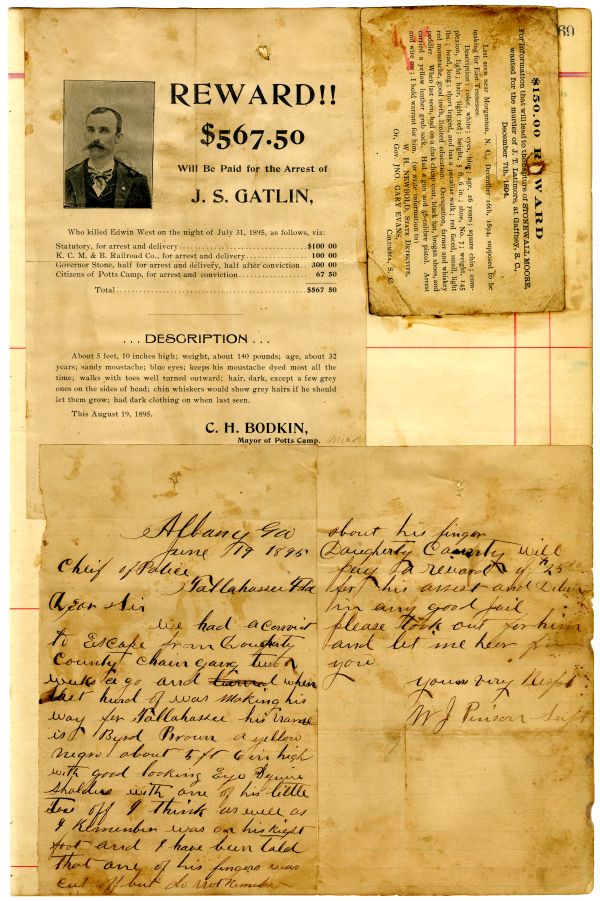 69
REWARD!!
$567.50
Will Be Paid for the Arrest of
J. S. GATLIN,
Who killed Edwin West on the night of July 31, 1895, as follows, viz:
Statutory, for arrest and delivery $100 00
K. C. M. & B. Railroad Co., for arrest and delivery 100 00
Governor Stone, half for arrest and delivery, half after conviction 300 00
Citizens of Potts Camp, for arrest and conviction 67 50
Total $567 50
...DESCRIPTION...
About 5 feet, 10 inches high; weight, about 140 pounds; age, about 32
years; sandy moustache; blue eyes; keeps his moustache dyed most all the
time; walks with toes well turned outward; hair, dark, except a few grey
ones on the sides of head; chin whiskers would show grey hairs if he should
let them grow; had dark clothing on when last seen.
This August 19, 1895.
C. H. BODKIN,
Mayor of Potts Camp.
$150.00 REWARD
For information that will lead to the capture of STONEWALL MOORE,
wanted for the murder of J. T. Latimore, at Gaffney, S. C.,
December 7th, 1894.
Last seen near Morganton, N. C., December 16th, 1894, supposed to be
making for East Tennessee.
Description: color, white; eyes, blue; age, 26 years; square chin; com-
plexion, light; hair, light red; height, 5 ft. 6 in.; shoe, No. 7; weight, 145
lbs.; head, long; short legged, and has a peculiar walk; red faced, small, light
red moustache, good teeth, limited education. Occupation, farmer and whiskey
peddler. When last seen, had on a dark cheap coat, black hat, brogan shoes, and
carried a yellow leather grub sack. Had a gun and 38-calibre pistol. Arrest
and wire me; I hold warrant for him. (or write information to)
W. H. NEWBOLD, State Detective,
Or, Gov. JNO. GARY EVANS,
Columbia, S. C.
Albany Ga
June 19 1895
Chief of Police
Tallahassee Fla
Dear Sir
We had a convict
to Escape from Dougherty
County Chain gang two
weeks ago and when
last hurd of was making his
way for Tallahassee his name
is Byrd Brown a yellow
negro about 5 ft 6 in high
with good looking Eye Squire
Sholders with one of his little
toe off I think as well as
I Remember was on his Right
foot and I have been told
that one of his fingers was
cut off but do not Remember
about his finger
Daugherty County will
pay a reward of $25.00
for his arrest and Deliver
in any good jail
please look out for him
and let me hear from
you
yours very Respt
W J Pinson Supt